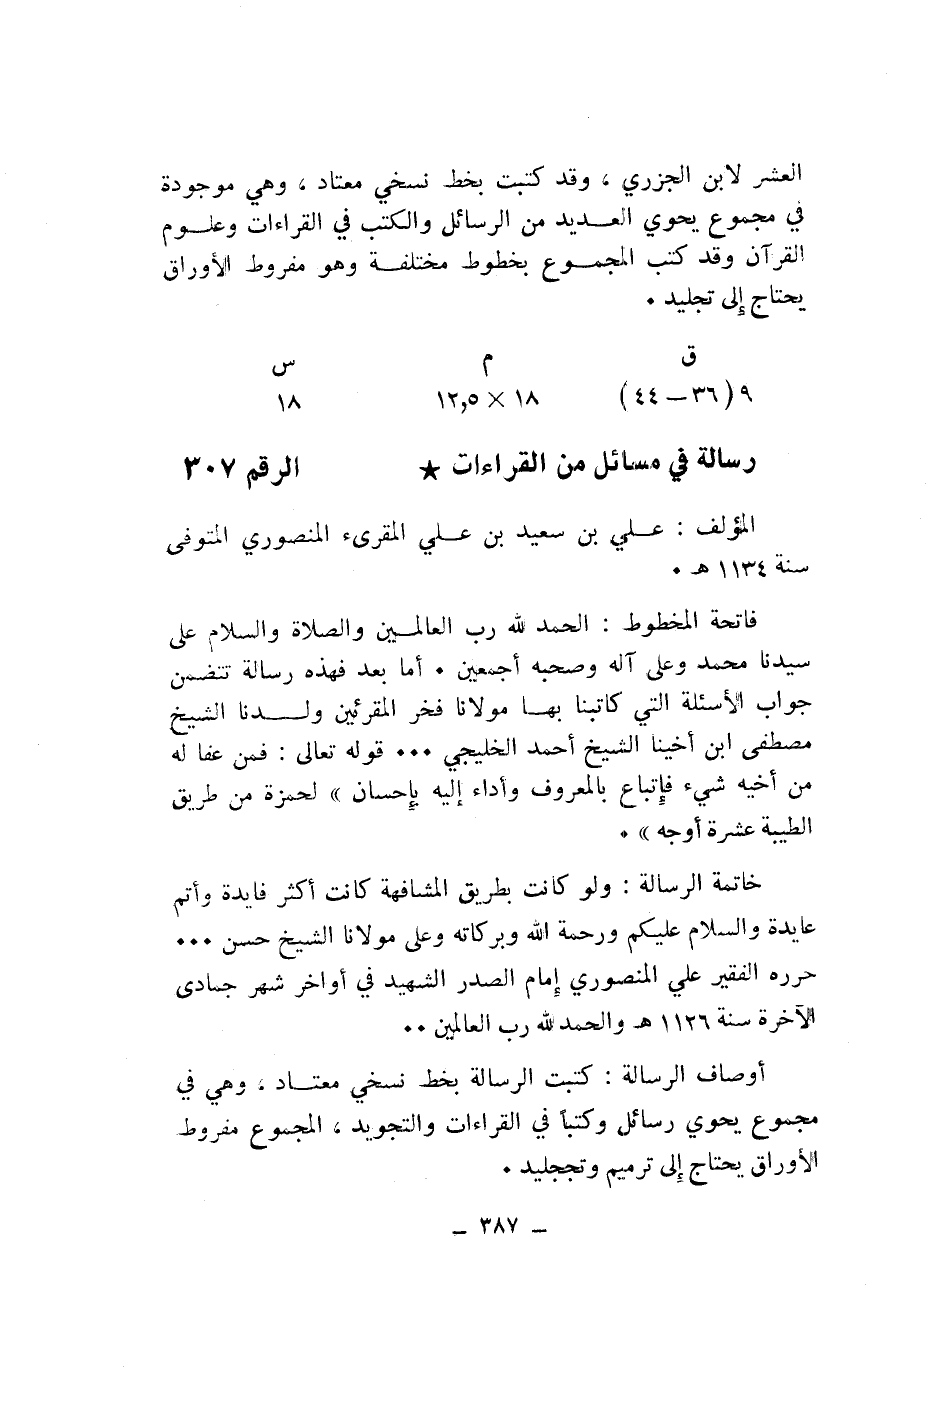 العشر لابن الجزري ، وقد كتبت بخط نسخي معتاد ، وهي موجودة
في مجموع يحوي العديد من الرسائل والكتب في القراءات وعلوم
القرآن وقد كتب المجموع بخطوط مختلفة وهو مفروط الأوراق
يحتاج إلى تجليد .
ق م س
٩ (٣٦ – ٤٤) ١٨ × ١٢٫٥ ١٨
رسالة في مسائل من القراءات ★ الرقم ٣٠٧
المؤلف : علي بن سعيد بن علي المقرىء المنصوري المتوفى
سنة ١١٣٤ هـ .
فاتحة المخطوط : الحمد لله رب العالمين والصلاة والسلام على
سيدنا محمد وعلى آله وصحبه أجمعين . أما بعد فهذه رسالة تتضمن
جواب الأسئلة التي كاتبنا بها مولانا فخر المقرئين ولدنا الشيخ
مصطفى ابن أخينا الشيخ أحمد الخليجي ... قوله تعالى : فمن عفا له
من أخيه شيء فإتباع بالمعروف وأداء إليه بإحسان » لحمزة من طريق
الطيبة عشرة أوجه » .
خاتمة الرسالة : ولو كانت بطريق المشافهة كانت أكثر فايدة وأتم
عايدة والسلام عليكم ورحمة الله وبركاته وعلى مولانا الشيخ حسن ...
حرره الفقير علي المنصوري إمام الصدر الشهيد في أواخر شهر جمادى
الآخرة سنة ١١٢٦ هـ والحمد لله رب العالمين ..
أوصاف الرسالة : كتبت الرسالة بخط نسخي معتاد ، وهي في
مجموع يحوي رسائل وكتباً في القراءات والتجويد ، المجموع مفروط
الأوراق يحتاج إلى ترميم وتججليد .
– ٣٨٧ –